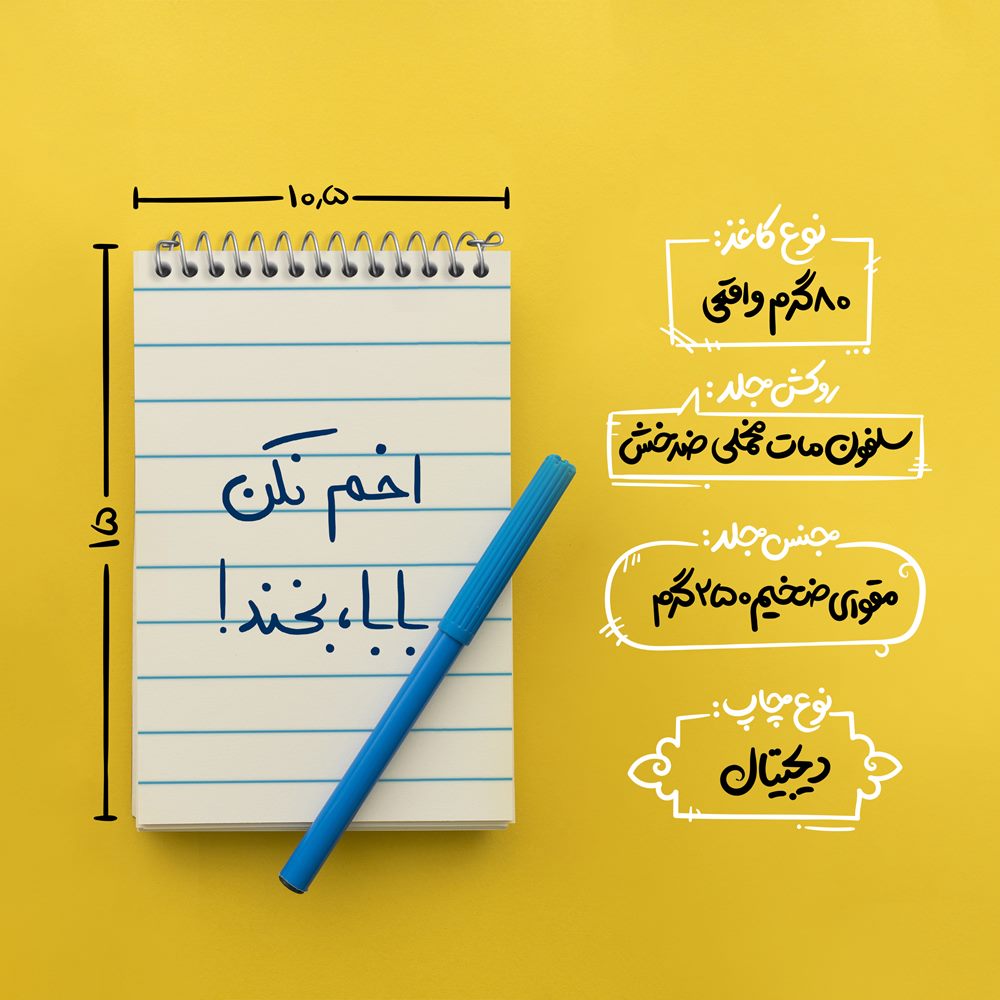 ۱۰٫۵
۱۵
اخم نکن
بابا، بخند!
نوع کاغذ:
۸۰گرم واقعی
روکش جلد:
سلفون مات مخملی ضدخش
جنس جلد:
مقوای ضخیم ۲۵۰گرم
نوع چاپ:
دیجیتال